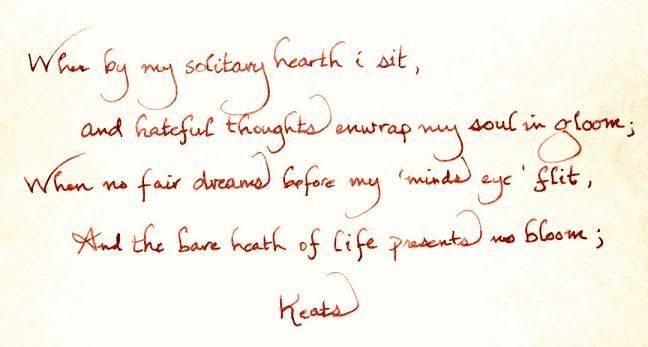 When by my solitary hearth i sit,
and hateful thoughts enwrap my soul in gloom;
When no fair dreams before my 'minds eye' flit,
And the bare heath of life presents no bloom;
Keats